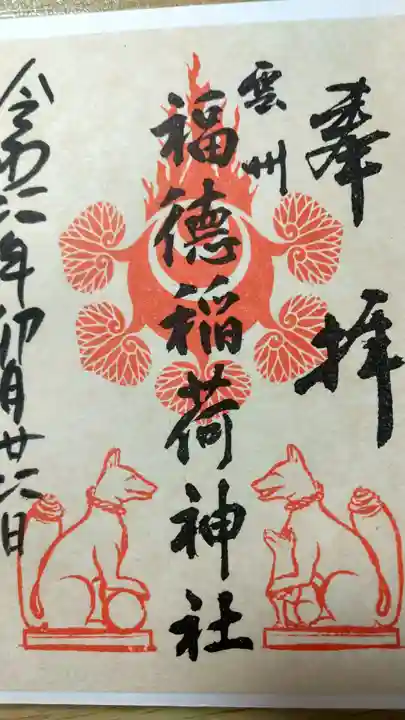 奉拝
雲州
福徳稲荷神社
令和六年卯月廿六日